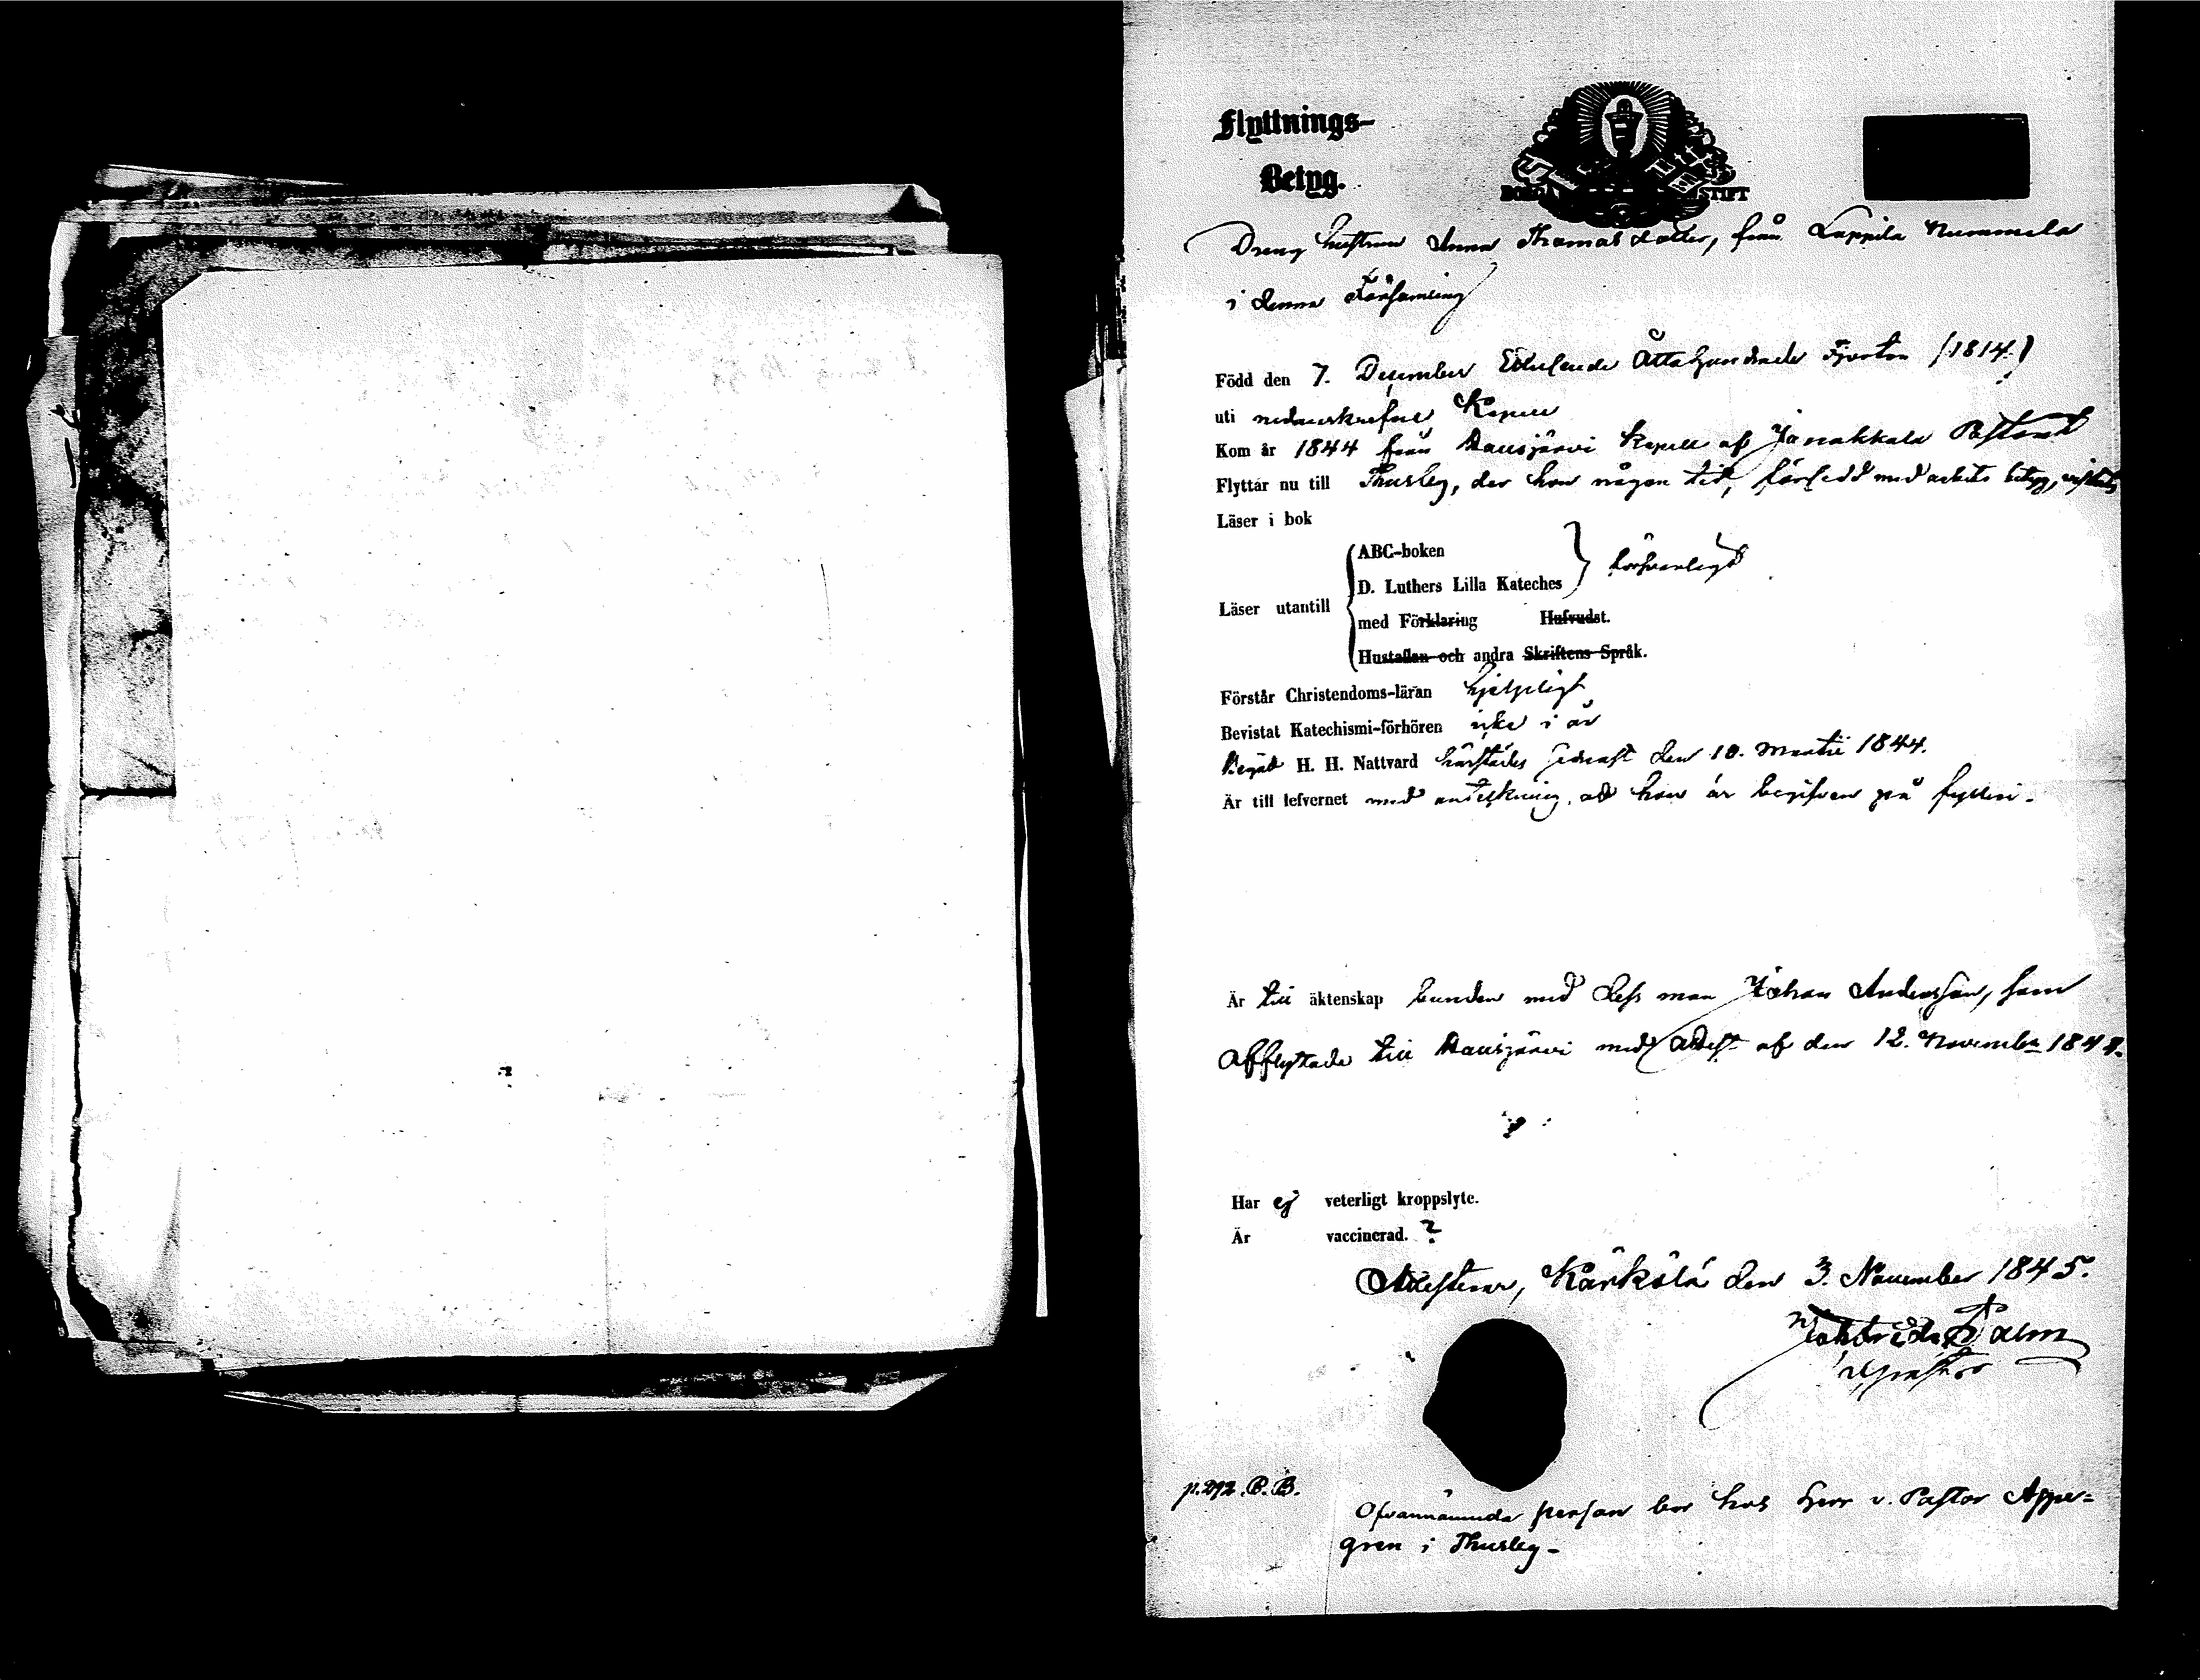 Flyttnings-
Betyg.
BORGÅ STIFT
Dreng hustrun Anna Thomas dotter, från Lappila Nummela
i denna Församling
Född den 7. December Ettusende Åttahundrade Fjorton (1814.)
uti nedanskrefne Kapell
Kom år 1844 från Hausjärvi Kapell af Janakkala Pastorat
Flyttar nu till Thusby, der hon någon tid, försedd med arbets betyg, vistats
Läser i bok
ABC-boken
D. Luthers Lilla Kateches
försvarligt
Läser utantill
med Förklaring Hufvudst.
Hustaflan och andra Skriftens Språk.
Förstår Christendoms-läran hjelpligt
Bevistat Katechismi-förhören icke i år
Begått H. H. Nattvard härstädes sednast den 10. Martii 1844.
Är till lefvernet med anteckning, att hon är begifven på fylleri.
Är till äktenskap bunden med dess man Johan Andersson, som
afflyttade till Hausjärvi med attest af den 12. November 184
Har ej veterligt kroppslyte.
Är vaccinerad. ?
Attesterar, Kärkölä den 3. November 1845.
p. 292. C. B.
Ofvannämnda person bor hos Herr v. Pastor Apper=
gren i Thusby.